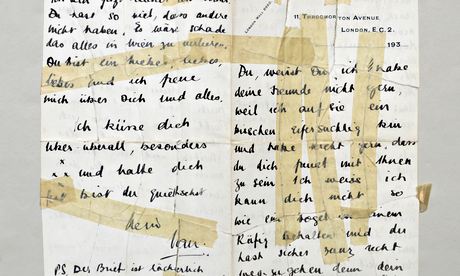 Du hast so viel, dass andere
nicht haben. Es wäre schade
das alles in zu verlieren.
Du bist ein liebes,
liebes und ich freue
mich über Dich und alles.
Ich küsse dich
über überall, besonders
x x und halte dich
bist der
Dein
PS. Der Brief ist lächerlich
LONDON WALL
11, THROGMORTON AVENUE,
LONDON, E.C. 2.
193
Du, weisst Du, ich habe
deine Freunde nicht gern,
weil ich auf sie ein
bischen eifersüchtig bin
und habe nicht gern, dass
du dich freust mit Ihnen
zu sein. Ich weiss ich
kann dich nicht so
wie ein Vogel in einem
Käfig behalten und du
hast sicher ganz recht
weg zu gehen denn dein